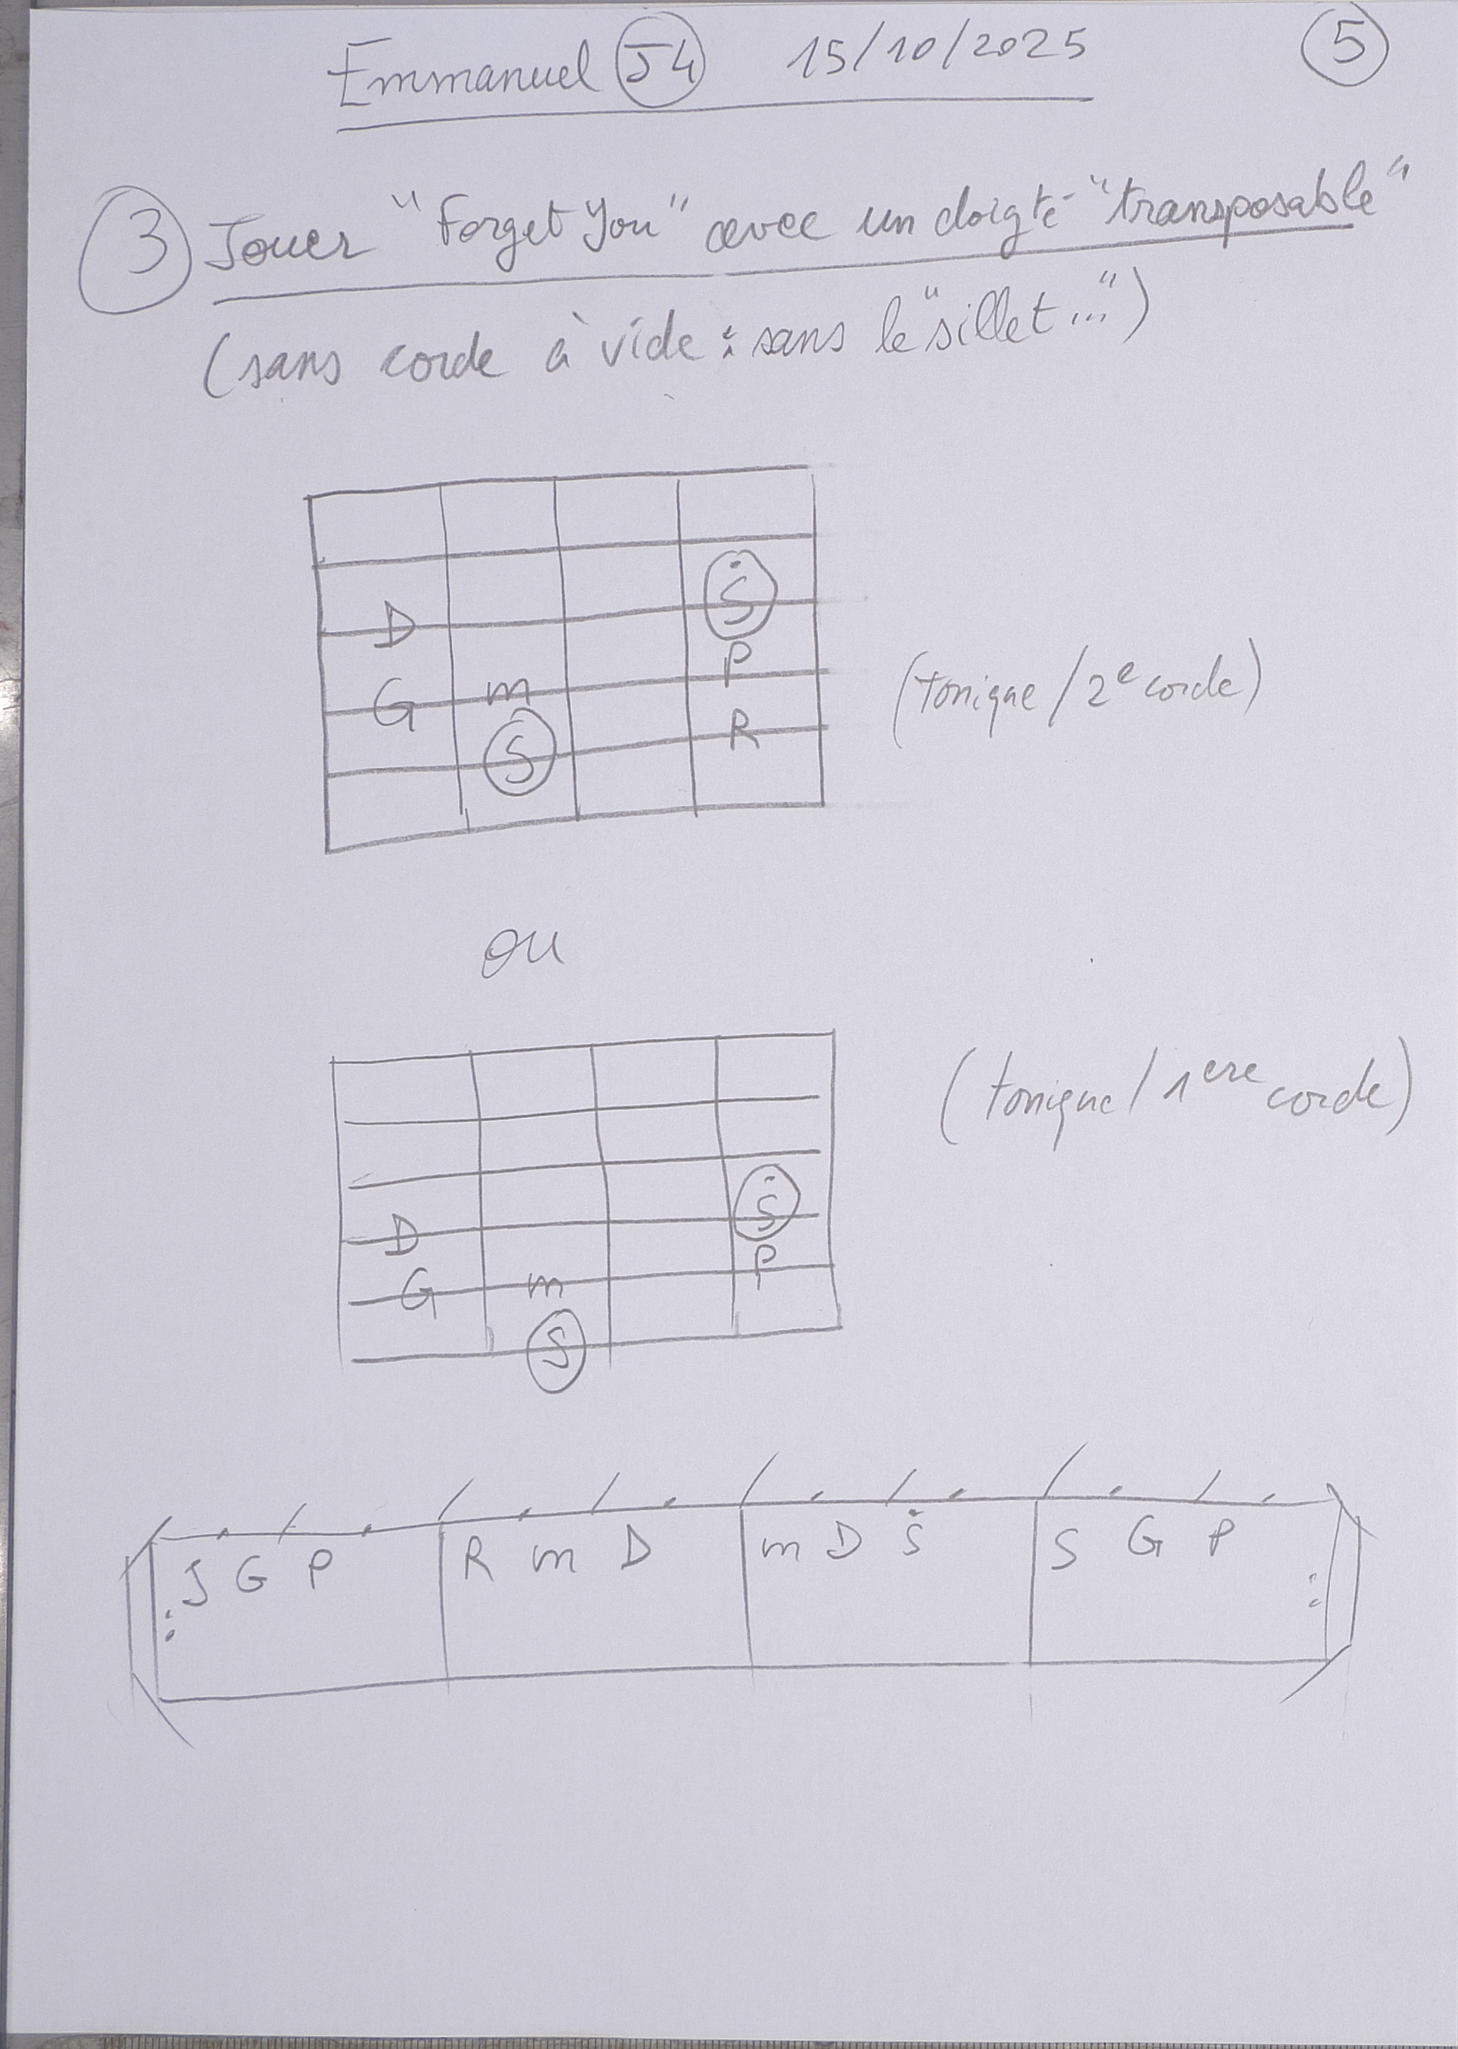 Emmanuel J4 15/10/2025 5
3 Jouer "Forget You" avec un doigté "transposable"
(sans corde à vide : sans le "sillet...")
Ṡ
D
P
G m
R
S
(tonique / 2e corde)
ou
(tonique / 1ere corde)
Ṡ
D
P
G m
S
S G P R m D m D Ṡ S G P